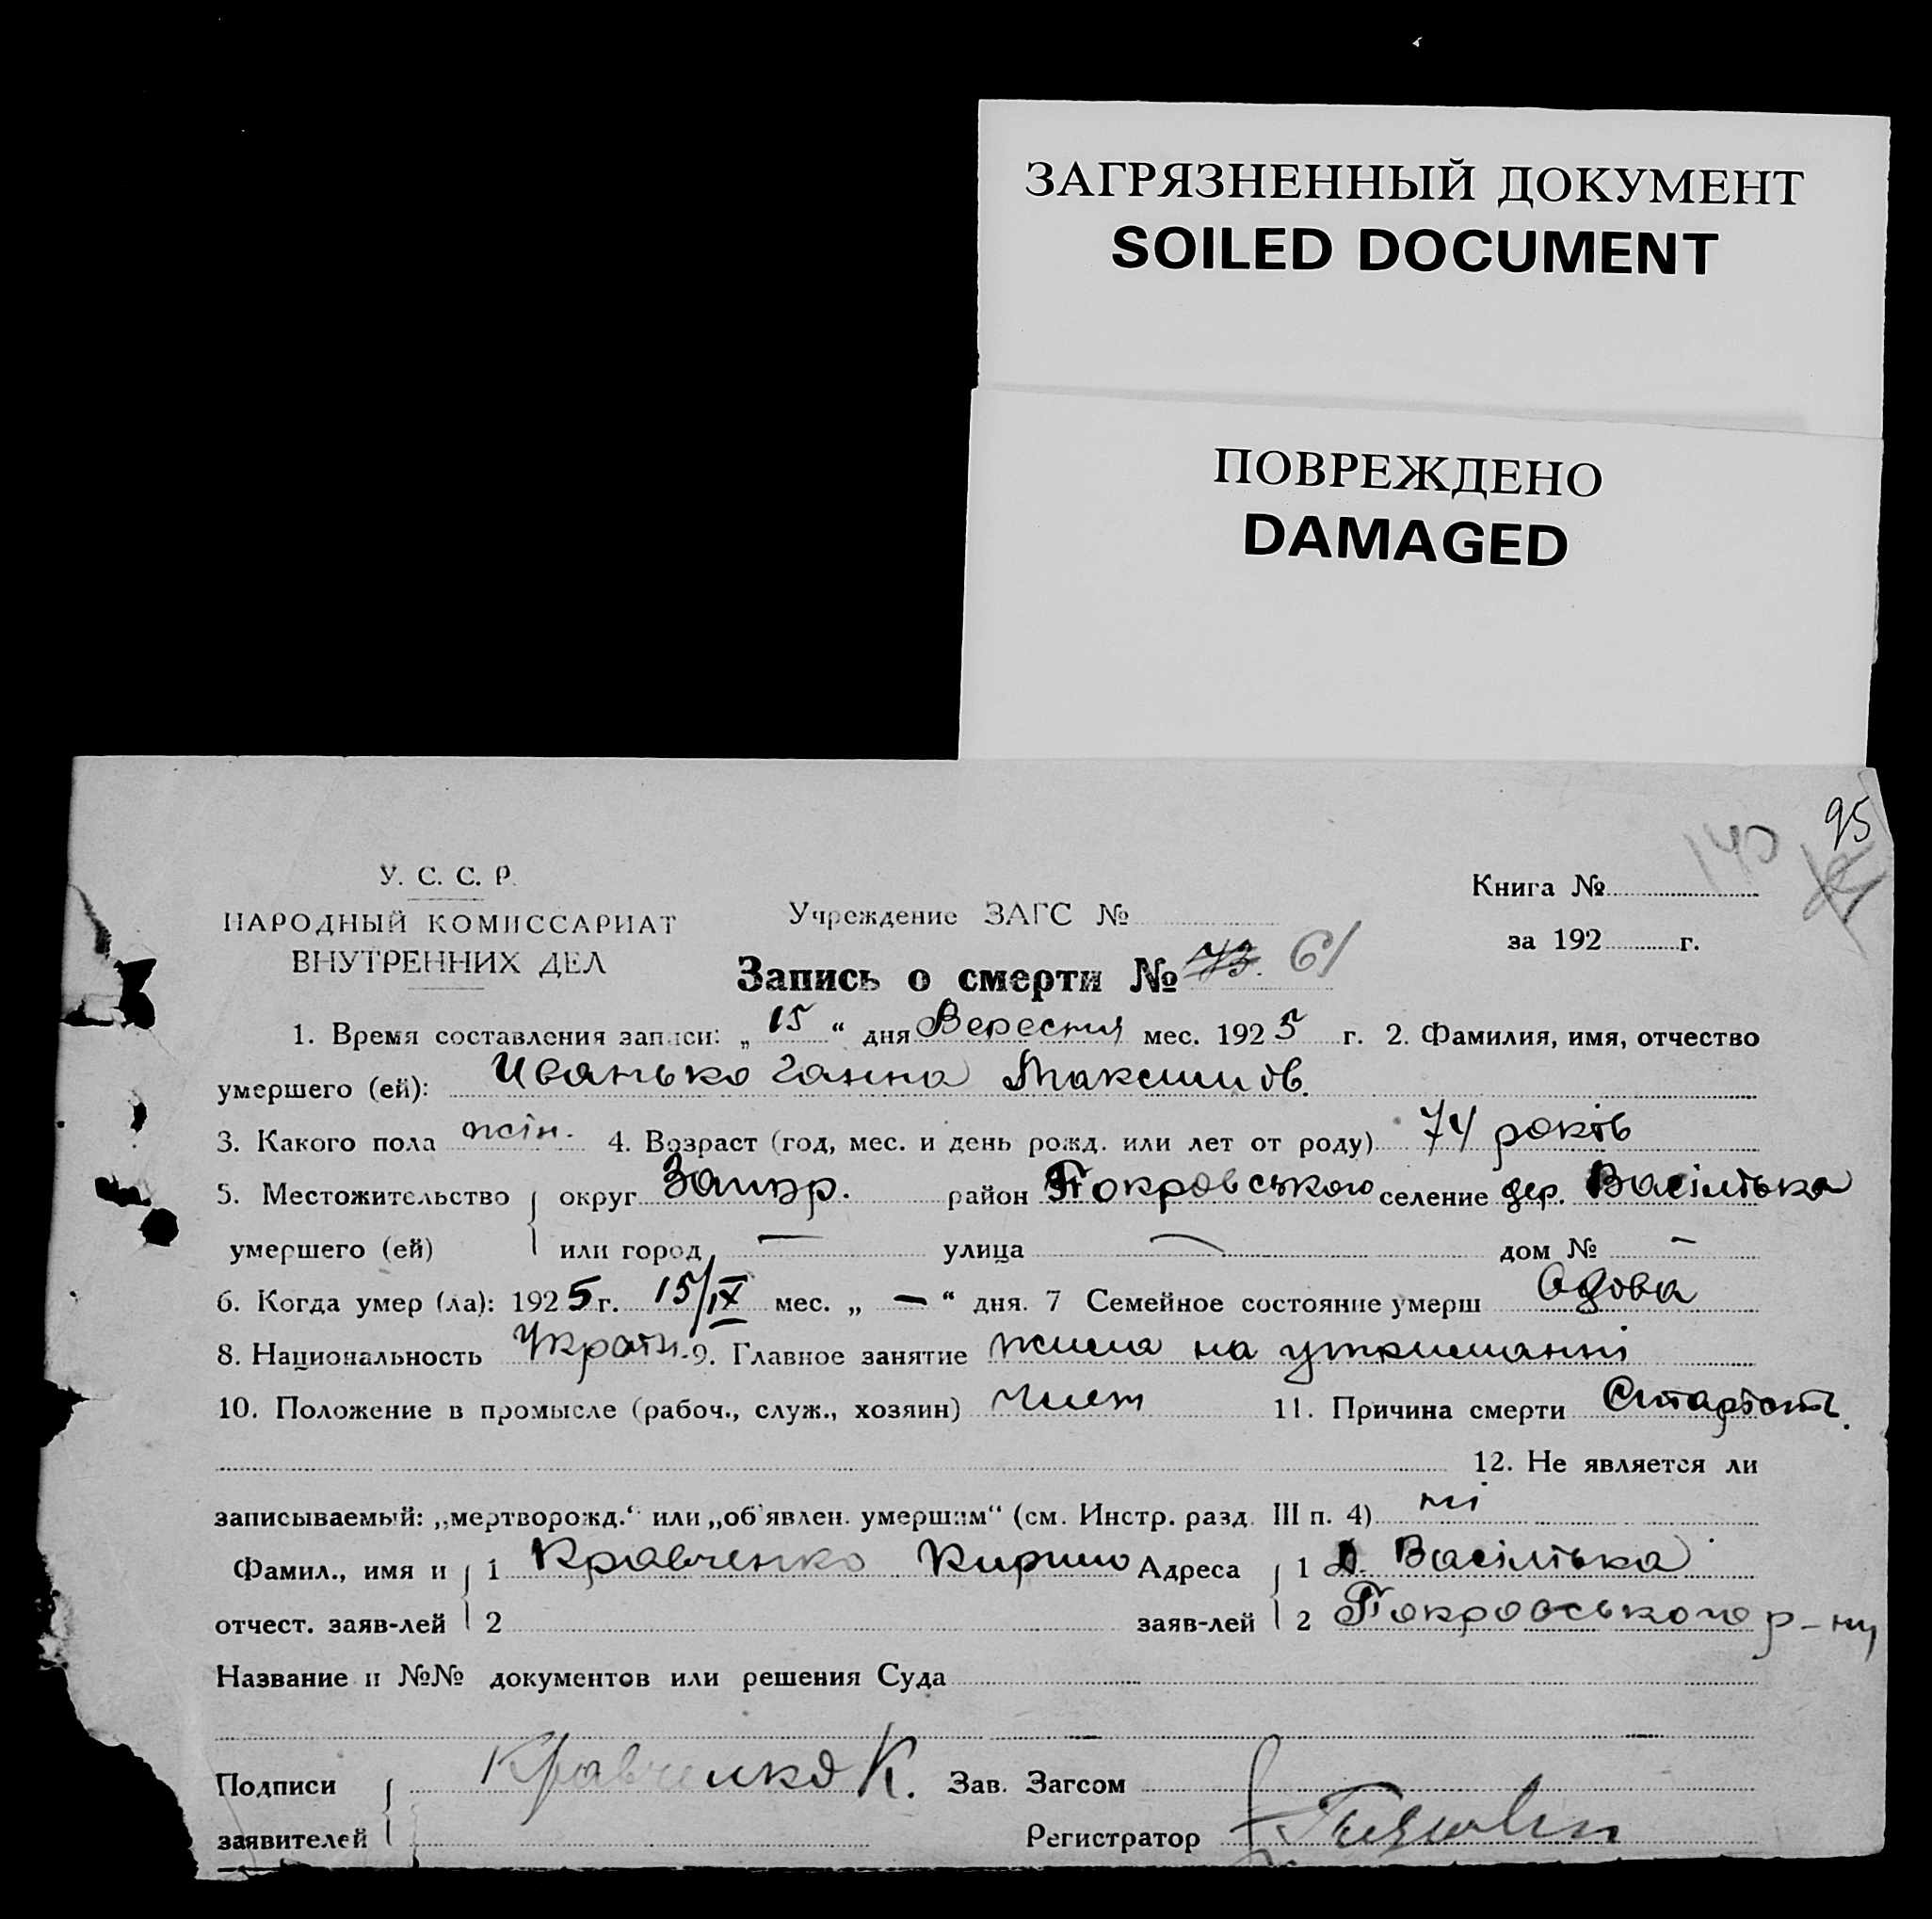 ЗАГРЯЗНЕННЫЙ ДОКУМЕНТ
SOILED DOCUMENT
ПОВРЕЖДЕНО
DAMAGED
95
У. С. С. Р.
НАРОДНЫЙ КОМИССАРИАТ
ВНУТРЕННИХ ДЕЛ
Учреждение ЗАГС №
Книга №
за 192 г.
Запись о смерти № 73. 61
1. Время составления записи: „ 15 “ дня Вересня мес. 1925 г. 2. Фамилия, имя, отчество
умершего (ей): Иванько Ганна Максимов.
3. Какого пола жін. 4. Возраст (год, мес. и день рожд. или лет от роду) 74 років
5. Местожительство округ Запор. район Покровського селение дер. Васілівка
умершего (ей) или город — улица — дом № -
6. Когда умер (ла): 1925 г. 15/IX мес. „ — “ дня. 7 Семейное состояние умерш Вдова
8. Национальность Україн. 9. Главное занятие жила на утриманні
10. Положение в промысле (рабоч., служ., хозяин) член 11. Причина смерти Старість.
12. Не является ли
записываемый: „мертворожд.“ или „об'явлен. умершим“ (см. Инстр. разд. III п. 4) ні
Фамил., имя и 1 Кравченко Кирило Адреса 1 д. Васілівка
отчест. заяв-лей 2 заяв-лей 2 Покровського р-ну
Название и №№ документов или решения Суда
Подписи Кравченко К. Зав. Загсом
заявителей Регистратор